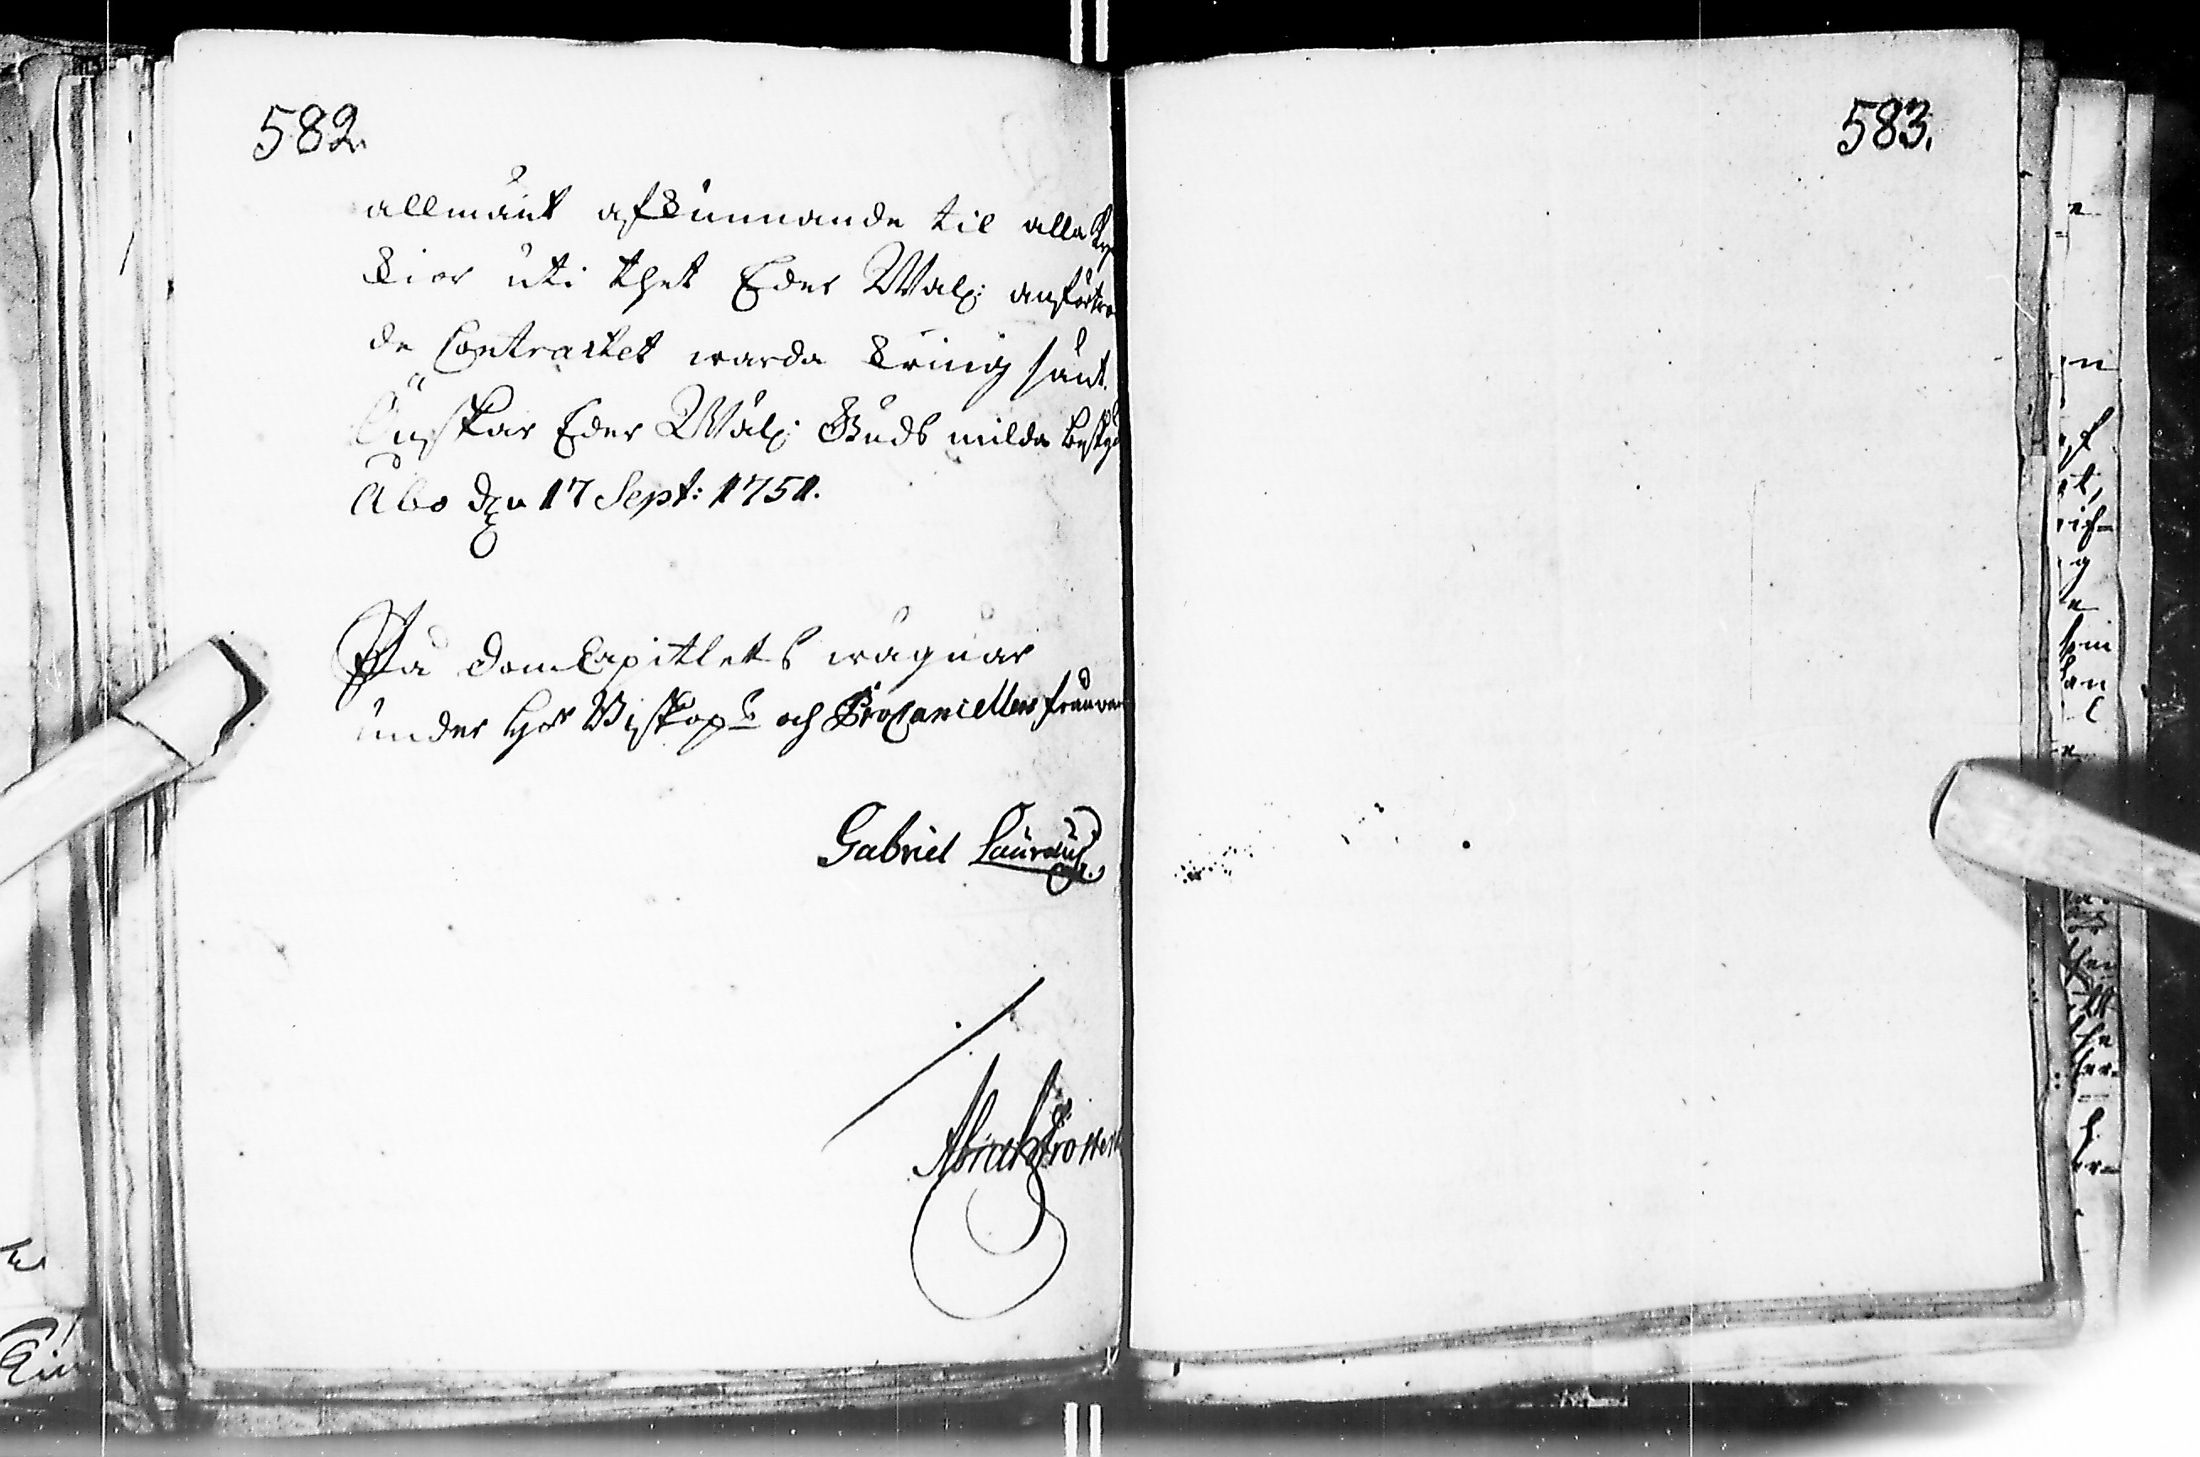 582.
allmänt afkunnande til alla
kior uti thet Eder Wäl: anförtro
de Contractet warda kring sänt.
Önskar Eder Wäl: Guds milda beskyd
Åbo den 17 Sept: 1751.
På DomCapitlets wägnar
under Hr Biskops och ProCancellers frånvar
Gabriel Lauræus
583.